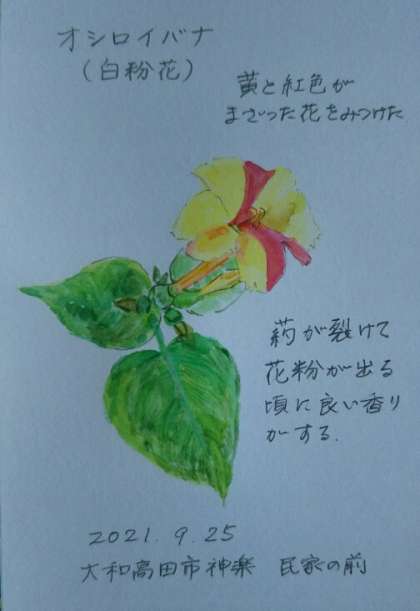 オシロイバナ
（白粉花）
黄と紅色が
まざった花をみつけた
葯が裂けて
花粉が出る
頃に良い香り
がする.
2021. 9. 25
大和高田市神楽 民家の前